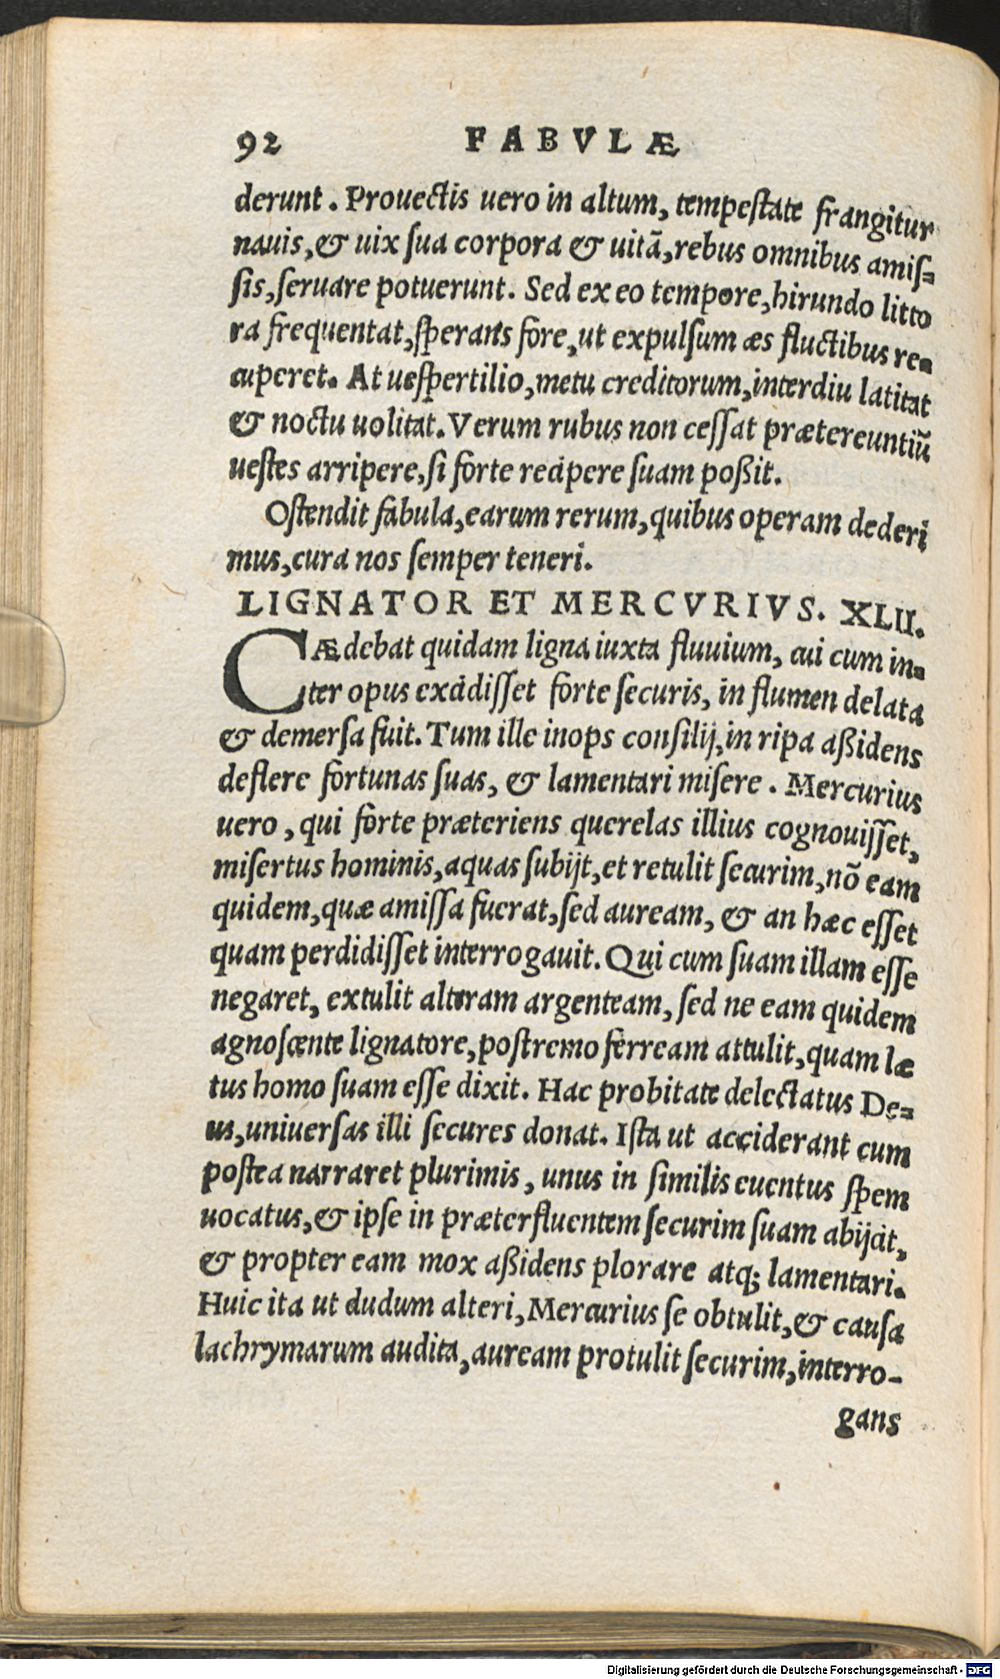 92 FABVLÆ
derunt. Prouectis uero in altum, tempestate frangitur
nauis, & uix sua corpora & uitā, rebus omnibus amis=
sis, seruare potuerunt. Sed ex eo tempore, hirundo litto
ra frequentat, sperans fore, ut expulsum æs fluctibus re=
cuperet. At uespertilio, metu creditorum, interdiu latitat
& noctu uolitat. Verum rubus non cessat prætereuntiū
uestes arripere, si forte recipere suam poßit.
Ostendit fabula, earum rerum, quibus operam dederi
mus, cura nos semper teneri.
LIGNATOR ET MERCVRIVS. XLII.
CÆdebat quidam ligna iuxta fluuium, cui cum in=
ter opus excidisset forte securis, in flumen delata
& demersa fuit. Tum ille inops consilij, in ripa aßidens
deflere fortunas suas, & lamentari misere. Mercurius
uero, qui forte præteriens querelas illius cognouisset,
misertus hominis, aquas subijt, et retulit securim, nō eam
quidem, quæ amissa fuerat, sed auream, & an hæc esset
quam perdidisset interrogauit. Qui cum suam illam esse
negaret, extulit alteram argenteam, sed ne eam quidem
agnoscente lignatore, postremo ferream attulit, quam læ
tus homo suam esse dixit. Hac probitate delectatus De=
us, uniuersas illi secures donat. Ista ut acciderant cum
postea narraret plurimis, unus in similis euentus spem
uocatus, & ipse in præterfluentem securim suam abijcit,
& propter eam mox aßidens plorare atq; lamentari.
Huic ita ut dudum alteri, Mercurius se obtulit, & causa
lachrymarum audita, auream protulit securim, interro-
gans
Digitalisierung gefördert durch die Deutsche Forschungsgemeinschaft - DFG